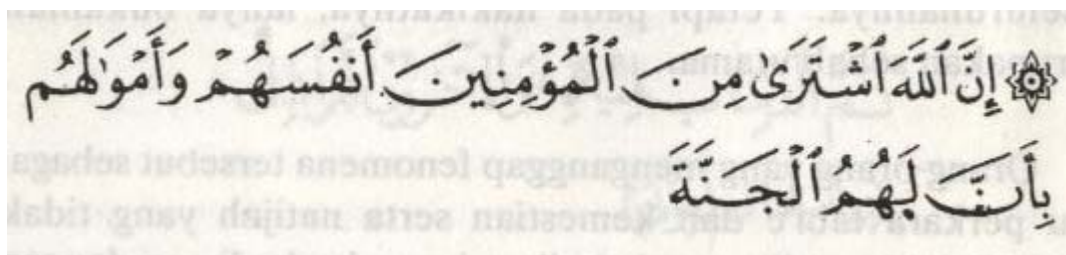 ۞ إِنَّ ٱللَّهَ ٱشْتَرَىٰ مِنَ ٱلْمُؤْمِنِينَ أَنفُسَهُمْ وَأَمْوَٰلَهُم
بِأَنَّ لَهُمُ ٱلْجَنَّةَ